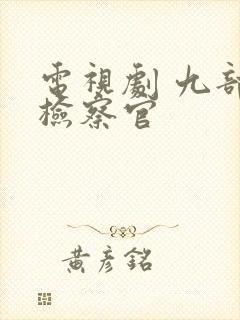 電視劇 九部
檢察官
黃彥銘